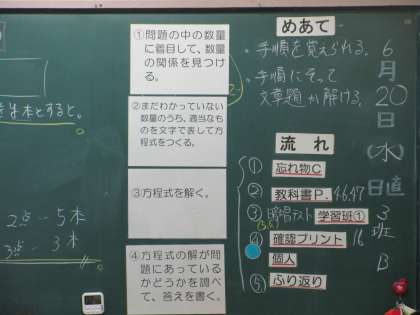 めあて
・手順を覚えられる。
・手順にそって
文章題が解ける。
6
月
20
日
(水)
日直
3
班
B
①問題の中の数量
に着目して、数量
の関係を見つけ
る。
②まだわかっていない
数量のうち、適当なも
のを文字で表して方
程式をつくる。
③方程式を解く。
④方程式の解が問
題にあっている
かどうかを調べ
て、答えを書く。
流れ
① 忘れ物C
② 教科書P. 46.47
③ 復習テスト 学習班①
④ 確認プリント 16
個人
⑤ ふり返り
本とすると。
2点…5本
3点…3本